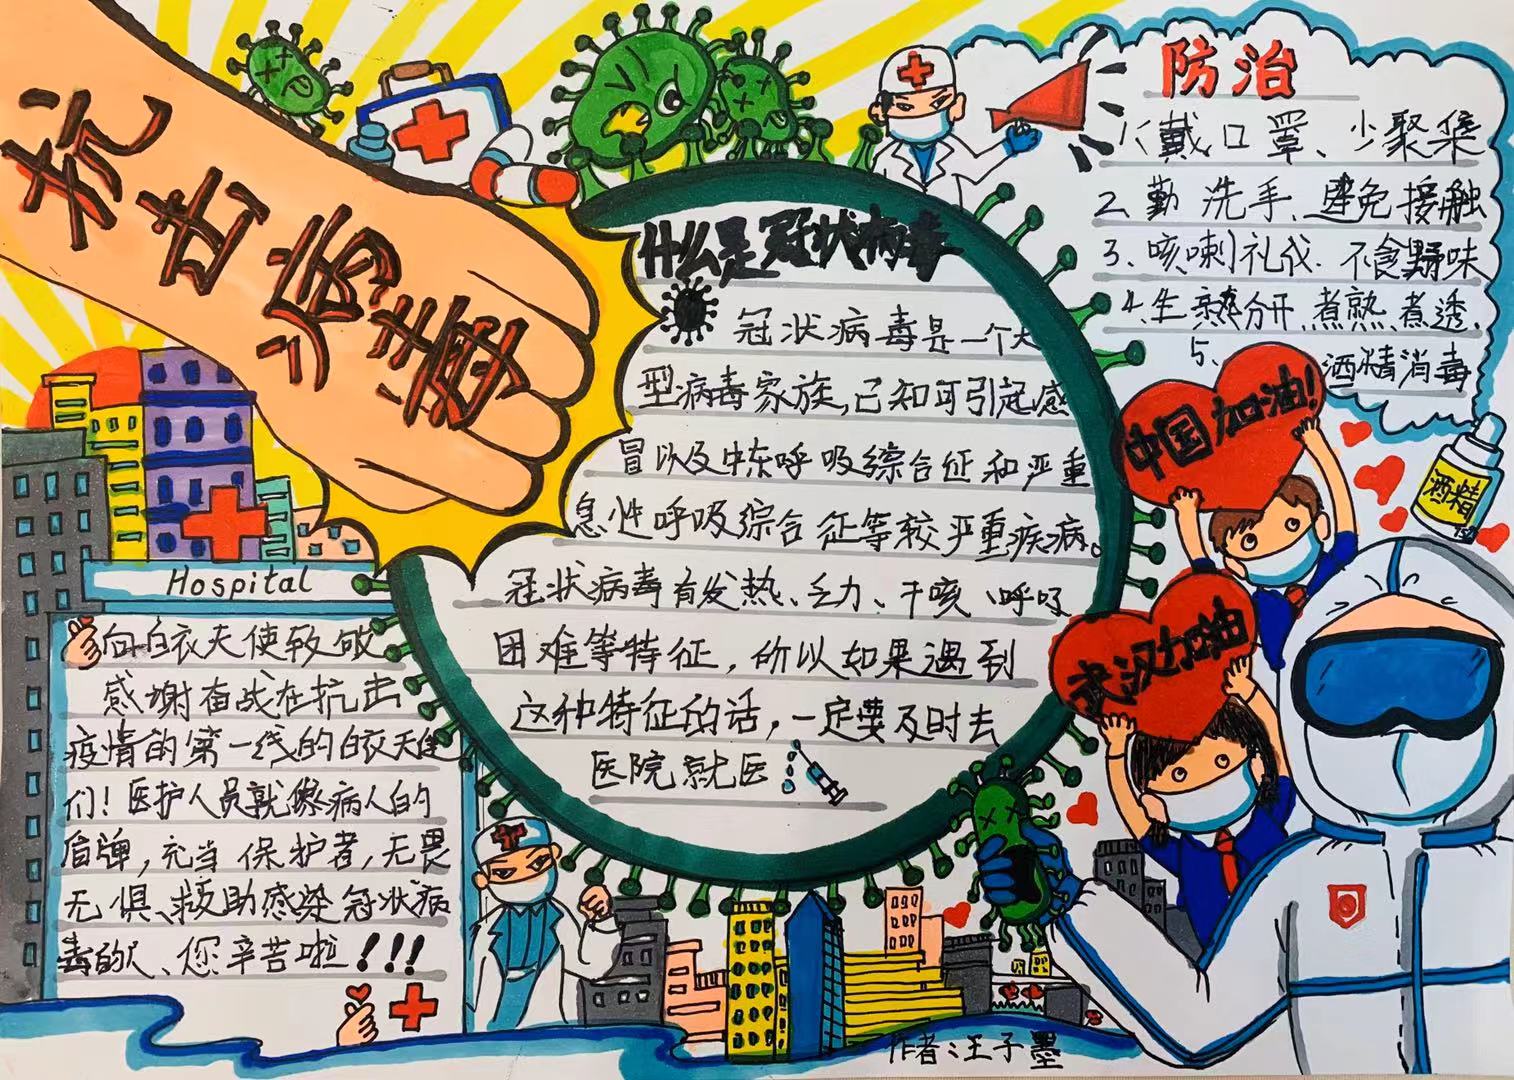 抗击病毒
什么是冠状病毒
冠状病毒是一个大
型病毒家族,已知可引起感
冒以及中东呼吸综合征和严重
急性呼吸综合征等较严重疾病。
冠状病毒有发热、乏力、干咳、呼吸
困难等特征,所以如果遇到
这种特征的话,一定要及时去
医院就医
防治
1、戴口罩、少聚集
2、勤洗手、避免接触
3、咳嗽礼仪.不食野味
4、生熟分开、煮熟煮透.
5、酒精消毒
中国加油!
酒精
武汉加油
Hospital
向白衣天使致敬
感谢奋战在抗击
疫情的第一线的白衣天使
们!医护人员就像病人的
盾牌,充当保护者,无畏
无惧、救助感染冠状病
毒的人、您辛苦啦!!!
作者:王子墨